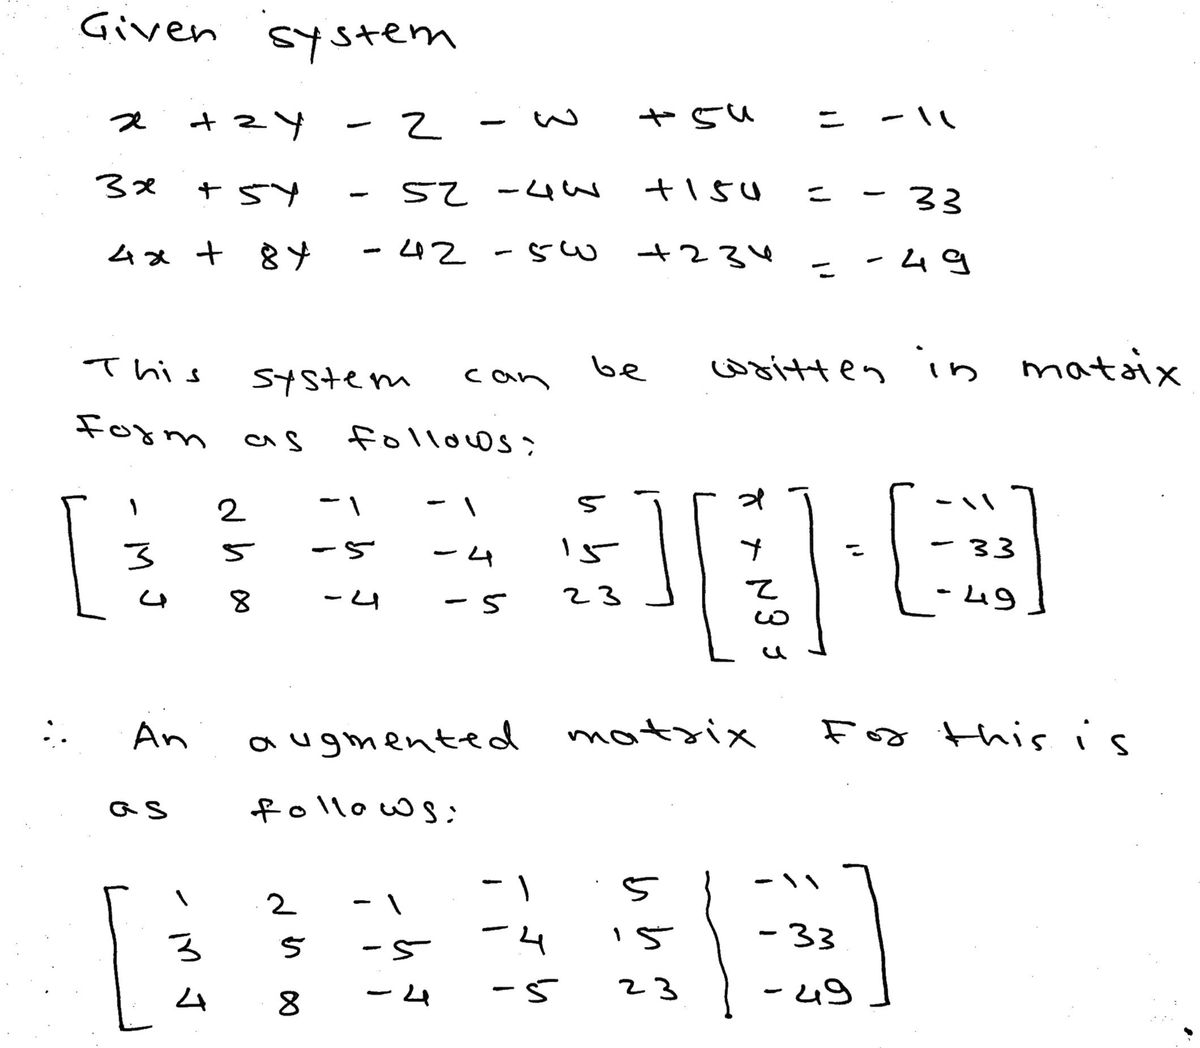 Given system
x + 2y - z - w + 5u = -11
3x + 5y - 5z - 4w + 15u = - 33
4x + 8y - 4z - 5w + 23u = - 49
This system can be written in matrix
Form as follows:
[ 1 2 -1 -1 5 ] [ x ] = [ -11 ]
[ 3 5 -5 -4 15 ] [ y ] [ -33 ]
[ 4 8 -4 -5 23 ] [ z ] [ -49 ]
[ w ]
[ u ]
∴ An augmented matrix For this is
as follows:
[ 1 2 -1 -1 5 | -11 ]
[ 3 5 -5 -4 15 | -33 ]
[ 4 8 -4 -5 23 | -49 ]